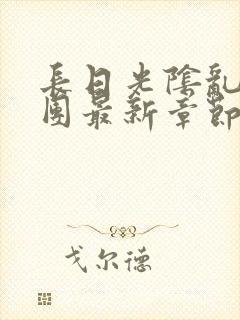 長日光陰亂
團最新章節
戈尔德